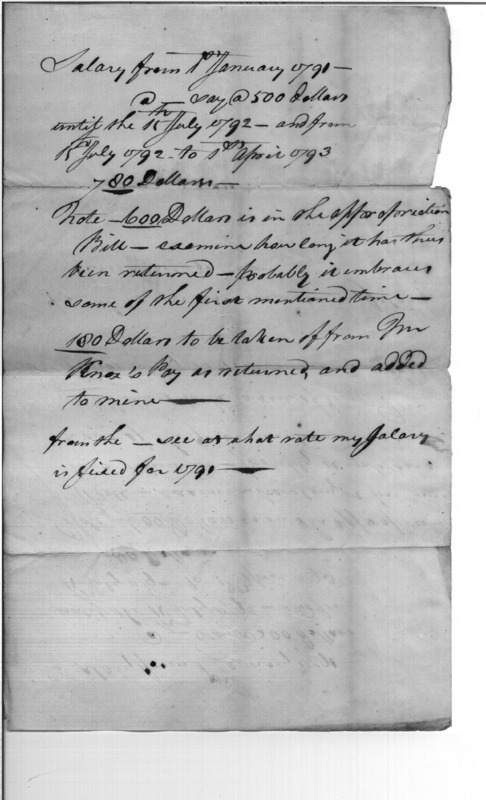 Salary from 1st January 1791 —
@ — say @ 500 Dollars
until the 15th July 1792 — and from
15th July 1792 to 1st April 1793
780 Dollars. —
Note — 600 Dollars is in the appropriation
Bill — examine how long it has thus
been returned — probably it embraces
some of the first mentioned time —
180 Dollars to be taken off from Mr
Knox's Pay as returned, and added
to mine —
from the — see at what rate my Salary
is fixed for 1791 —